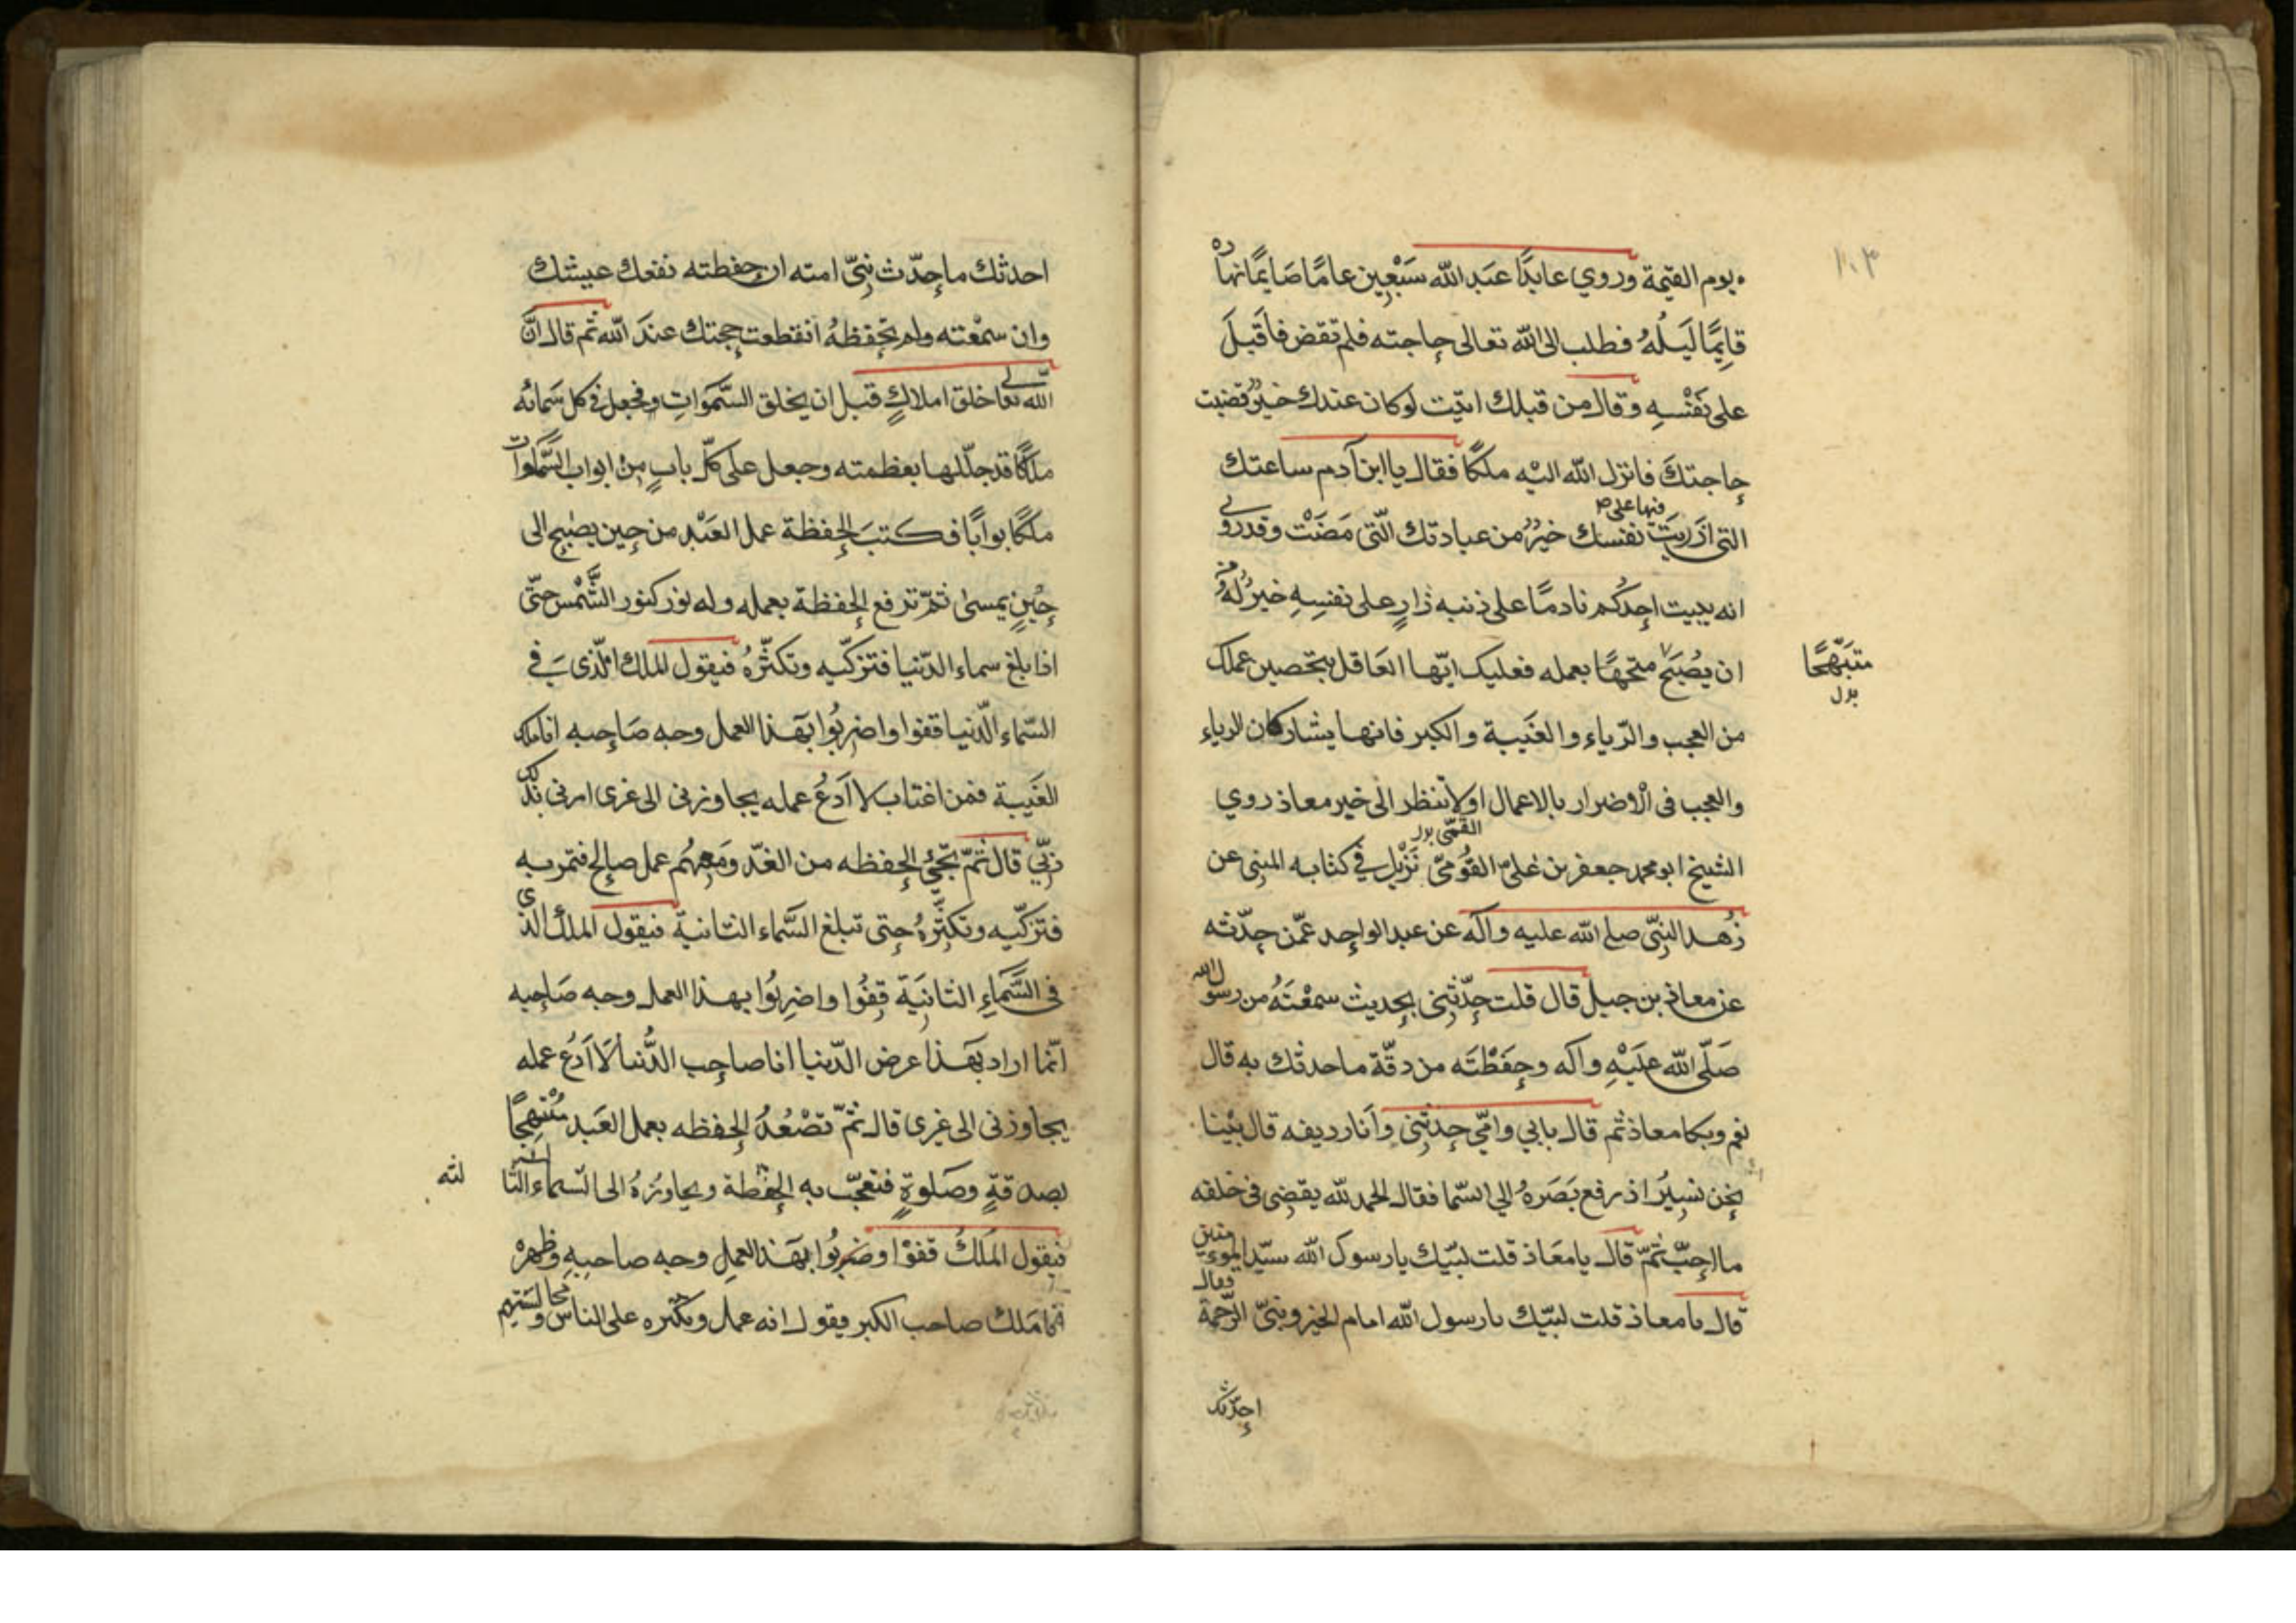 ١٠٣
يوم القيمة وروي عابدًا عبد الله سَبْعِين عامًا صَايمًا نهاره
قايِمًا لَيلُهُ فطلب الى الله تعالى حاجته فلم تقض فاَقبَلَ
على نَفْسِهِ وقال من قبلك اتيت لو كان عندك خيرٌ قضيت
حاجتكَ فانزل الله اليْه ملكًا فقال يا ابن آدم ساعتك
فيها على ص
التى ازريتَ نفسك خيرٌ من عبادتك الّتى مَضَتْ وقد روي
انه يبيت احدكُم نادمًا على ذنبه زارٍ على نفسِهِ خيرٌ لهُ من
ان يُصْبَحَ متحهًا بعمله فعليك ايّها العَاقل بتحصين عملك
متبَهّجًا
بدل
من العجب والرّياء والغَيبة والكبر فانها يشاركان الرياء
والعجب فى الْاضرار بالاعمال اولا تنظر الى خبر معاذ روي
القمّى بدل
الشيخ ابو محمد جعفر بن علىّ القُوَمىّ نَزْيل في كتابه المبنى عن
زُهد النبِىّ صلى الله عليه واله عن عبد الواحد عمّن حدّثه
عن معاذ بن جبل قال قلت حدّثنى بحديث سمعْتَهُ من رسول الله
صَلّى الله عَليْهِ واله وحفَظْتَه من دقّة ما حدثك به قال
نعم وبكا معاذ ثم قال بابي وامّي حدثنى وأنا رديفه قال بيْنا
نحن نسِيرُ اذ رفع بَصَرهُ الي السّما فقال الحمد لله يقضى فى خلقه
ما احبّ ثمّ قال يا معَاذ قلت لبّيك يا رسول الله سيّد الموءمنين
فقال
قال يا معاذ قلت لبّيك يا رسول الله امام الخير ونبىّ الرّحمة
احدّثك
احدثك ما حدّث نبِىّ امته ان حفظته نفعك عيشك
وان سمعْته ولم تحْفظهُ انقطعت حجتك عندَ الله ثم قال انَّ
الله تعالى خلق املاكٍ قبل ان يخلق السَّموَاتِ فجعل فى كل سَمائه
ملَكًا قد جلّلها بعظمته وجعل على كلّ بابٍ مِنْ ابواب السَّماوات
ملَكًا بوابًا فكتبَ الحفظة عمل العَبْد من حِين يصْبح الى
حِيْنٍ يمسى ثمّ ترفع الحفظة بعمله وله نور كنور الشَّمْس حتّى
اذا بلغ سماء الدّنيا فتزكّيه وتكثّرهُ فيقول الملك الّذى في
السّماء الّدنيا قفوا واضرِبُوا بهَذا العمل وجه صَاحبه انا ملك
الغَيبة فمن اغتاب لا اَدَعُ عمله يجاوزنى الى غرى امرنى بذلك
رَبّي قال ثمّ تجّئ الحفظه من الغدّ ومَعِهُم عمل صالح فتمر به
فتزكّيه وتكثّرهُ حتى تبلغ السَّماء الثانية فيقول الملك الذى
فى السَّماءِ الثانيَة قِفُوا واضرِبُوا بهذا العمل وجه صَاحبه
انّما اراد بهَذا عرض الدّنيا انا صاحب الدُّنيا لَا اَدَعُ عمله
يجاوزنى الى غرى قال ثمّ تصْعُدُ الحفظه بعمل العَبد مُبْتهِجًا
بصدقةٍ وصَلوةٍ فتعجّب به الحفظة ويجاوزهُ الى السّماء الثا
لثه
فيقول المَلكُ قفوْا وضرِبُوا بهَذا العملِ وجه صاحبِهِ وظهره
انا مَلك صاحب الكبر فيقول انه عمل وتكبّره على الناس وَ مجالستهم